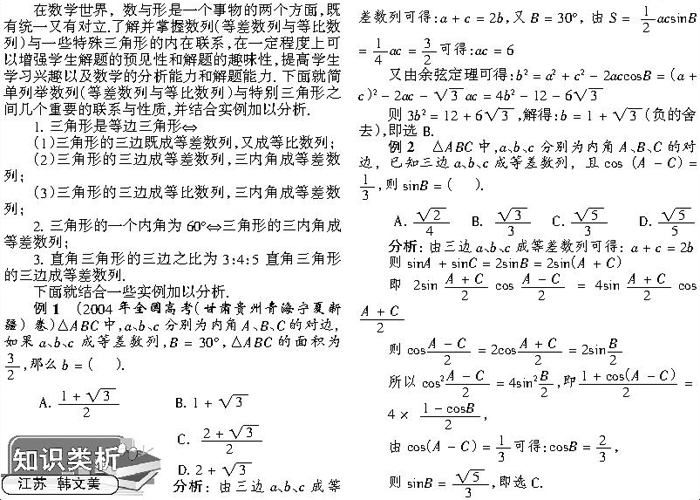 在数学世界，数与形是一个事物的两个方面,既
有统一又有对立.了解并掌握数列(等差数列与等比数
列)与一些特殊三角形的内在联系,在一定程度上可
以增强学生解题的预见性和解题的趣味性,提高学生
学习兴趣以及数学的分析能力和解题能力. 下面就简
单列举数列(等差数列与等比数列)与特别三角形之
间几个重要的联系与性质,并结合实例加以分析.
1. 三角形是等边三角形⇔
(1)三角形的三边既成等差数列,又成等比数列;
(2)三角形的三边成等差数列,三内角成等差数
列;
(3)三角形的三边成等比数列,三内角成等差数
列.
2. 三角形的一个内角为 60°⇔三角形的三内角成
等差数列;
3. 直角三角形的三边之比为 3:4:5 直角三角形
的三边成等差数列.
下面就结合一些实例加以分析.
例 1 (2004 年全国高考(甘肃贵州青海宁夏新
疆) 卷)△ABC 中,a、b、c 分别为内角 A、B、C 的对边,
如果 a、b、c 成等差数列,B = 30°,△ABC 的面积为
3/2,那么 b = ( ).
A. (1 + √3)/2 B. 1 + √3
C. (2 + √3)/2
D. 2 + √3
知识类析
江苏 韩文美
分析: 由三边 a、b、c 成等
差数列可得:a + c = 2b,又 B = 30°, 由 S = 1/2 acsinB
= 1/4 ac = 3/2 可得:ac = 6
又由余弦定理可得:b² = a² + c² - 2accosB = (a +
c)² - 2ac - √3 ac = 4b² - 12 - 6√3
则 3b² = 12 + 6√3 ,解得:b = 1 + √3 (负的舍
去),即选 B.
例 2 △ABC 中,a、b、c 分别为内角 A、B、C 的对
边, 已知三边 a、b、c 成等差数列, 且 cos (A - C) =
1/3,则 sinB = ( ).
A. √2/4 B. √3/3 C. √5/3 D. √5/5
分析: 由三边 a、b、c 成等差数列可得: a + c = 2b
则 sinA + sinC = 2sinB = 2sin(A + C)
即 2sin (A + C)/2 cos (A - C)/2 = 4sin (A + C)/2 cos
(A + C)/2
则 cos (A - C)/2 = 2cos (A + C)/2 = 2sin B/2
所以 cos² (A - C)/2 = 4sin² B/2 ,即 (1 + cos(A - C))/2 =
4 × (1 - cosB)/2 ,
由 cos(A - C) = 1/3 可得:cosB = 2/3 ,
则 sinB = √5/3 ,即选 C.